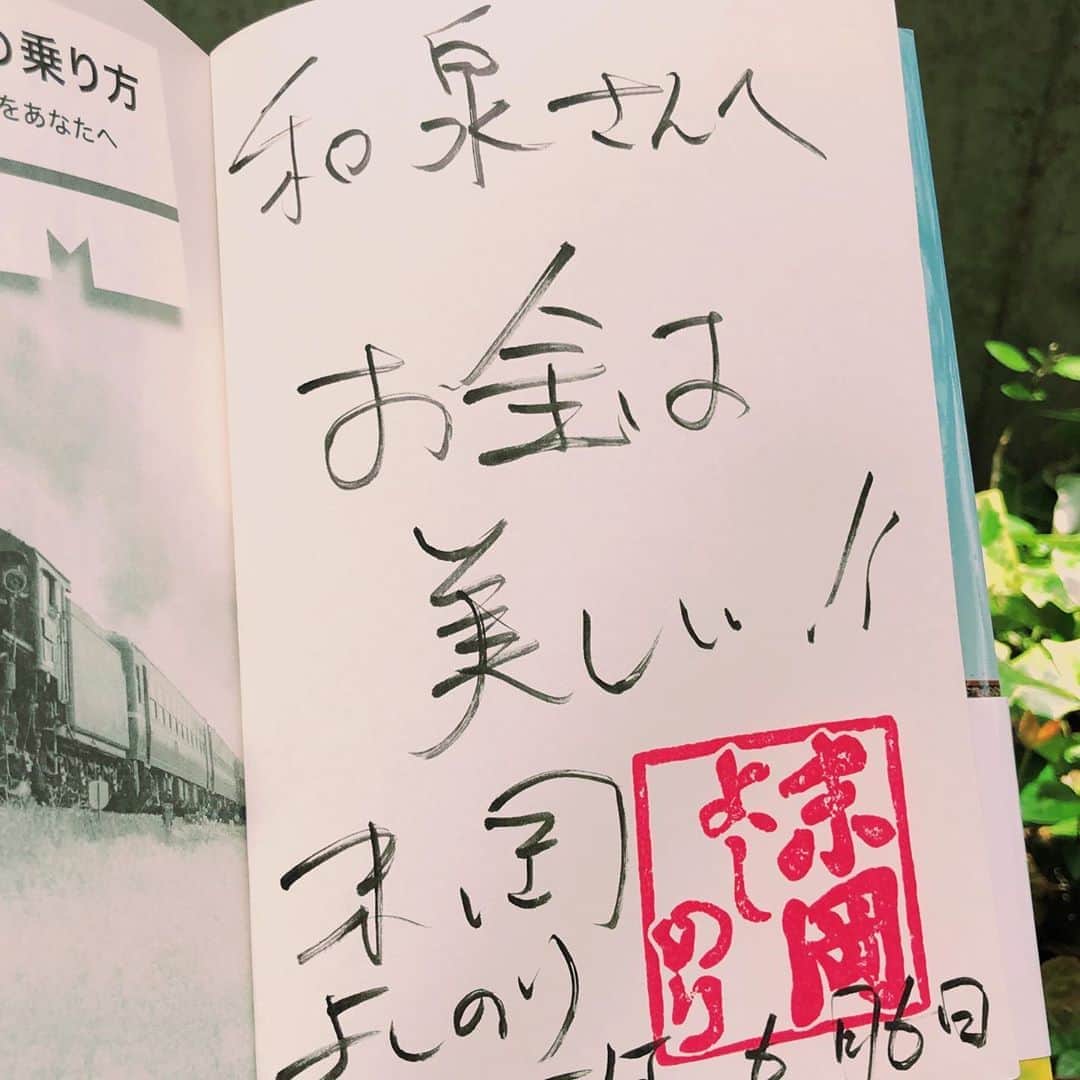 の乗り方
をあなたへ
和泉さんへ
お金は
美しい!!
末岡
よしのり
末岡
よし
のり
6月6日